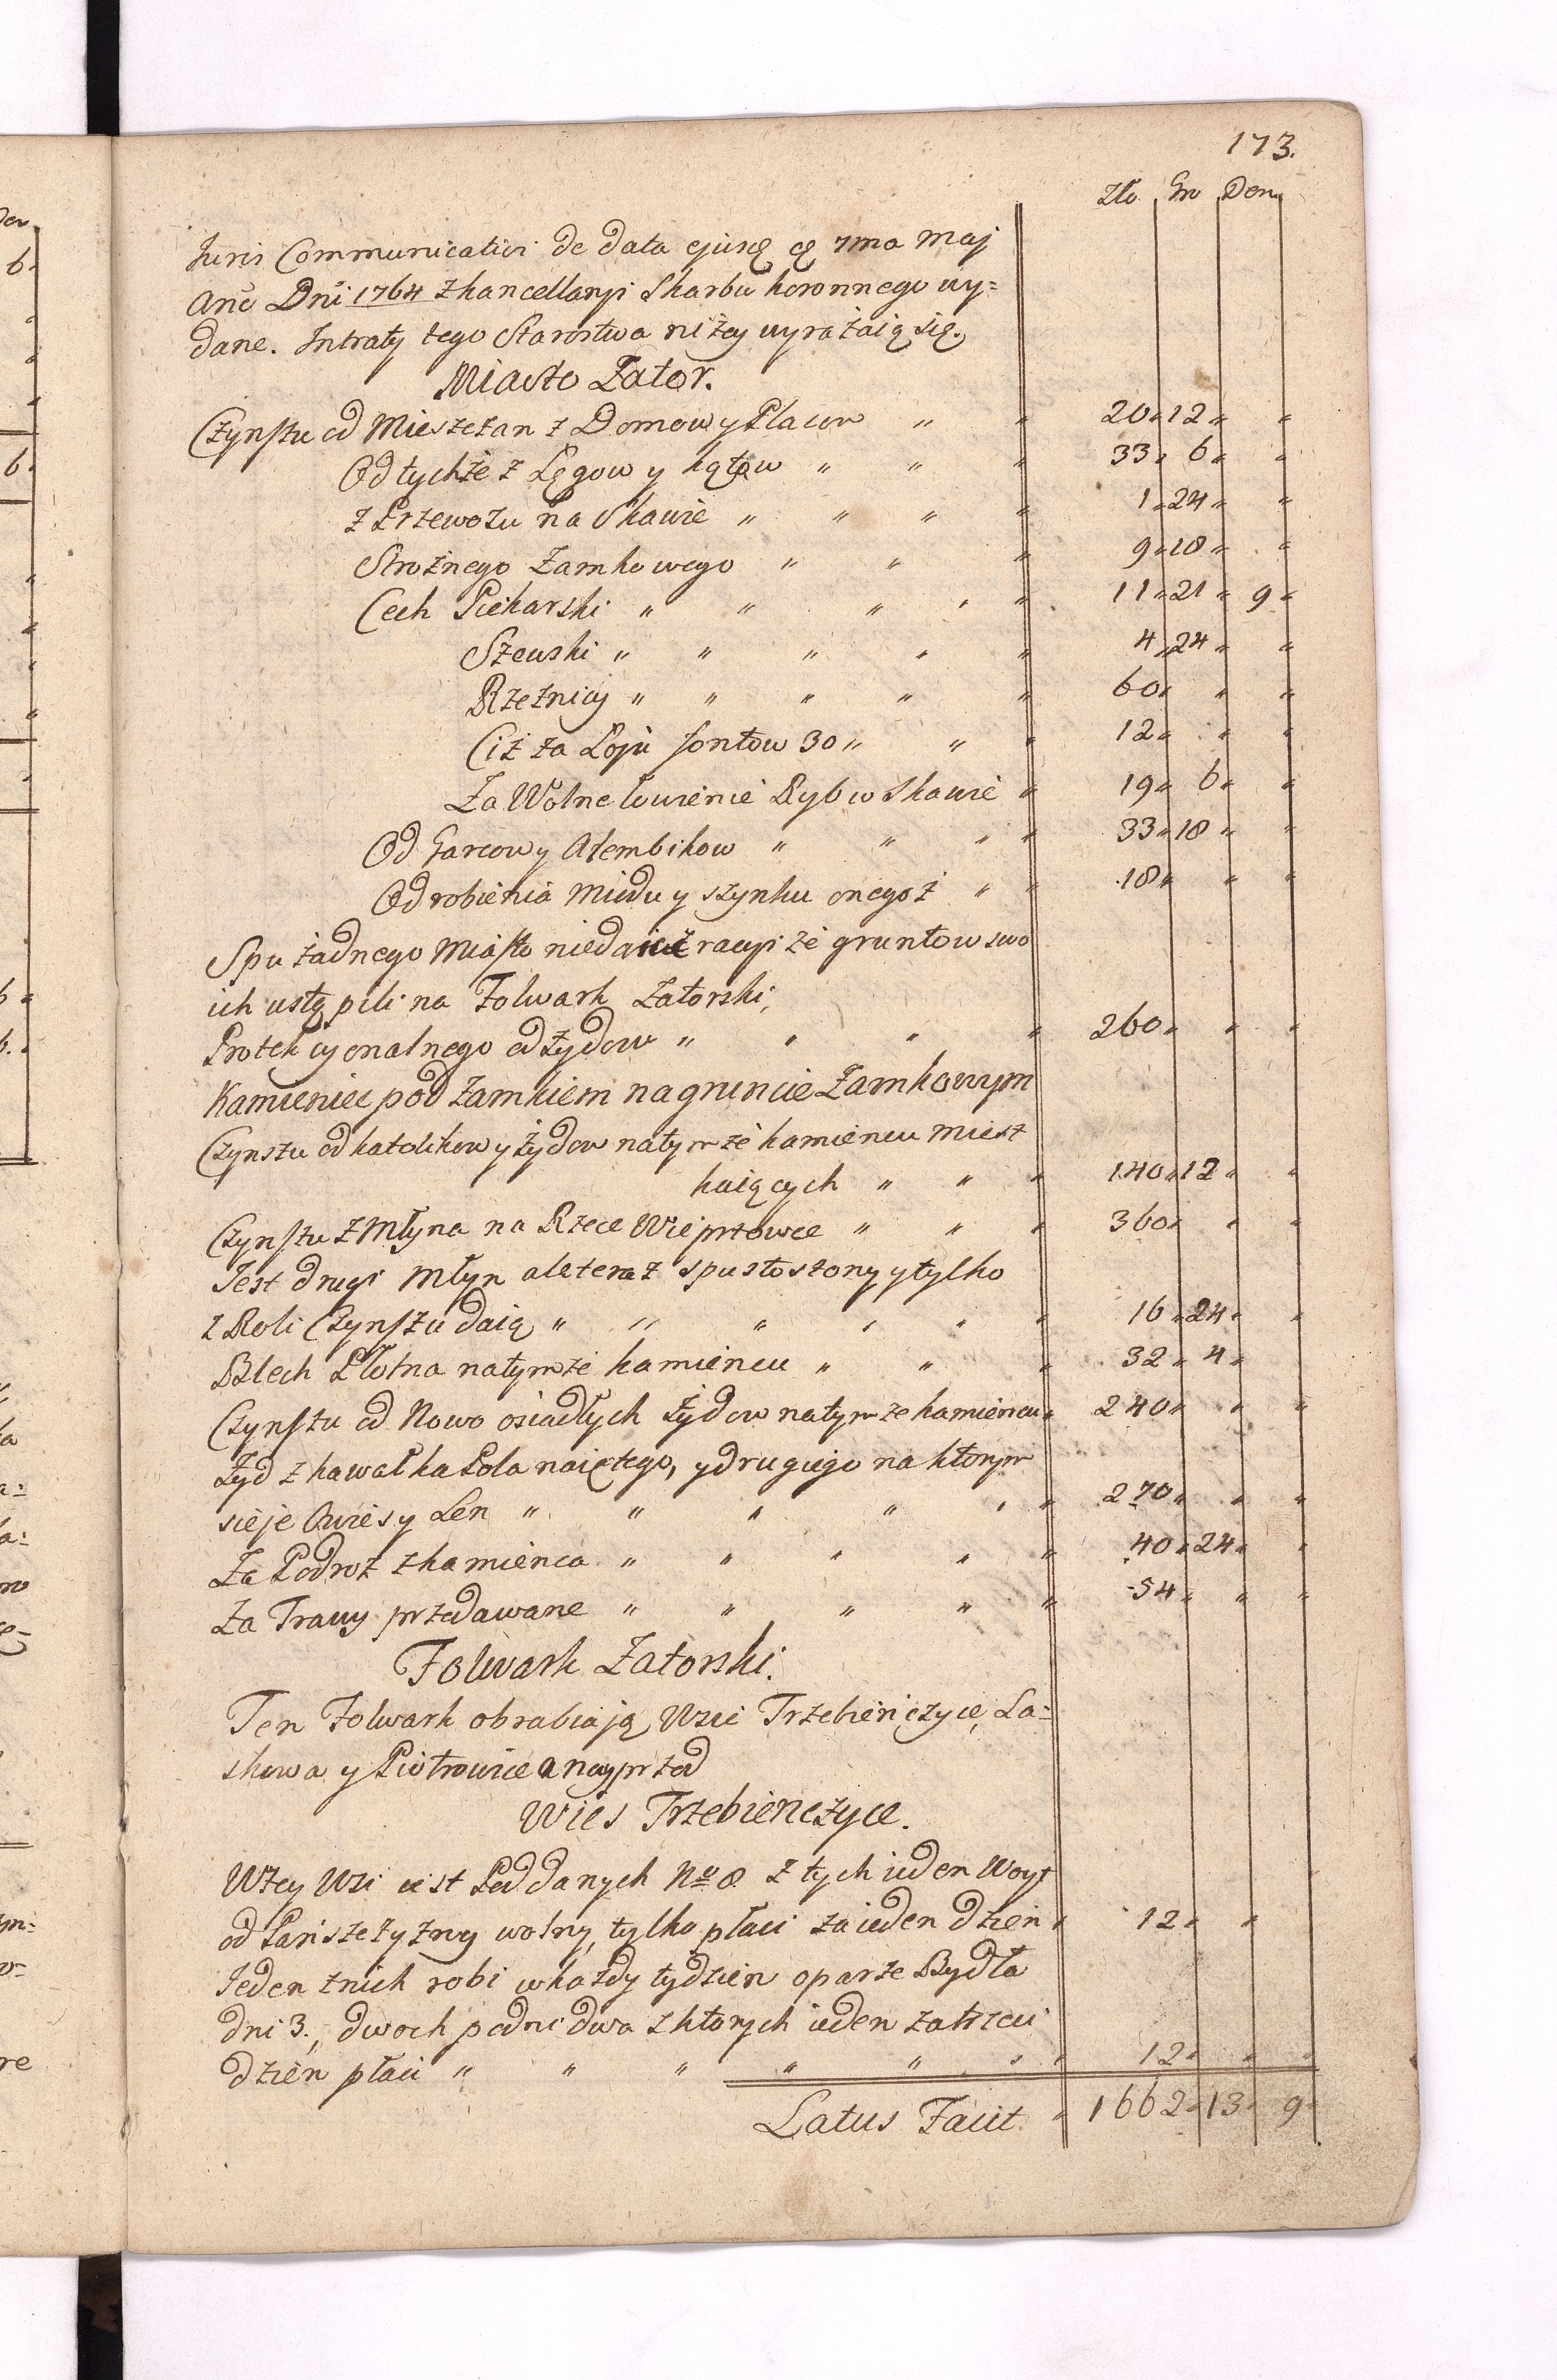 173.
Zło Gro Den
Juris Communicativi de data ejusq ę 7ma Maj
Ano Dni 1764 z kancellaryi Skarbu koronnego wy=
dane. Intraty tego Starostwa niżey wyrażaią się.
Miasto Zator.
Czynszu od Mieszczan z Domow y Placow " " 20 " 12 " "
Od tychże z Lęgow y kątow " " " 33 " 6 " "
z Przewozu na Skawie " " " " 1 " 24 " "
Strożnego Zamkowego " " " 9 " 18 " "
Cech Piekarski " " " " " 11 " 21 " 9 "
Szewski " " " " " 4 " 24 " "
Rzeznicy " " " " " 60 " " "
Ciż za Loju fontow 30 " " " 12 " " "
Za Wolne łowienie Ryb w Skawie " 19 " 6 " "
Od Garcow y Alembikow " " " " 33 " 18 " "
Od robienia Miodu y szynku onegoż " " 18 " " "
Spu żadnego Miasto niedaie racyi że gruntow swo
ich ustąpili na Folwark Zatorski,
Protekcyonalnego od żydow " " " " 260 " " "
Kamieniec pod Zamkiem na gruncie Zamkowym
Czynszu od katolikow y żydow natymże kamiencu miesz
kaiących " " " 140 " 12 " "
Czynszu z Młyna na Rzece Wieprzowce " " " 360 " " "
Jest drugi Młyn ale teraz spustoszony y tylko
z Roli Czynszu daią " " " " " " 16 " 24 " "
Blech Płotna natymże kamiencu " " " 32 " 4 "
Czynszu od Nowo osiadłych żydow natymże kamiencu " 240 " " "
Żyd z kawałka Pola naiętego, y drugiego na ktorym
sieje Owies y Len " " " " " " 270 " " "
Za Podroż z kamienca " " " " " 40 " 24 " "
Za Trawy przedawane " " " " " 54 " " "
Folwark Zatorski.
Ten Folwark obrabiają Wsie Trzebienczyce, La=
skowa y Piotrowice a nayprzod
Wies Trzebienczyce.
W tey Wsi iest Poddanych No 8 z tych ieden Woyt
od Panszczyzny wolny, tylko płaci za ieden dzien " 12 " "
Jeden z nich robi w każdy tydzien oparze Bydła
dni 3., dwoch po dni dwa z ktorych ieden za trzeci
dzien płaci " " " " " " " 12 " " "
Latus Facit " 1662 " 13 " 9 "